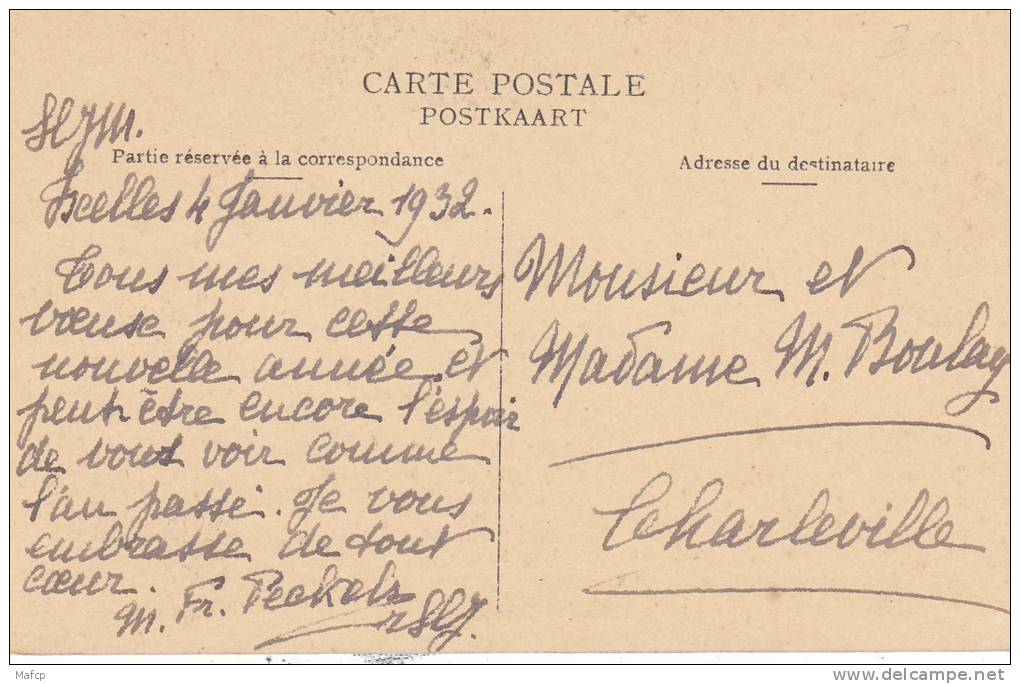 CARTE POSTALE
POSTKAART
Partie réservée à la correspondance
Adresse du destinataire
Ixelles 4 Janvier 1932.
Tous mes meilleurs
vœuse pour cette
nouvelle année et
peut-être encore l'espoir
de vous voir comme
l'an passé. Je vous
embrasse de tout
cœur.
M. Fr.
Monsieur et
Madame M. Boulay
Charleville
Mafcp
www.delcampe.net